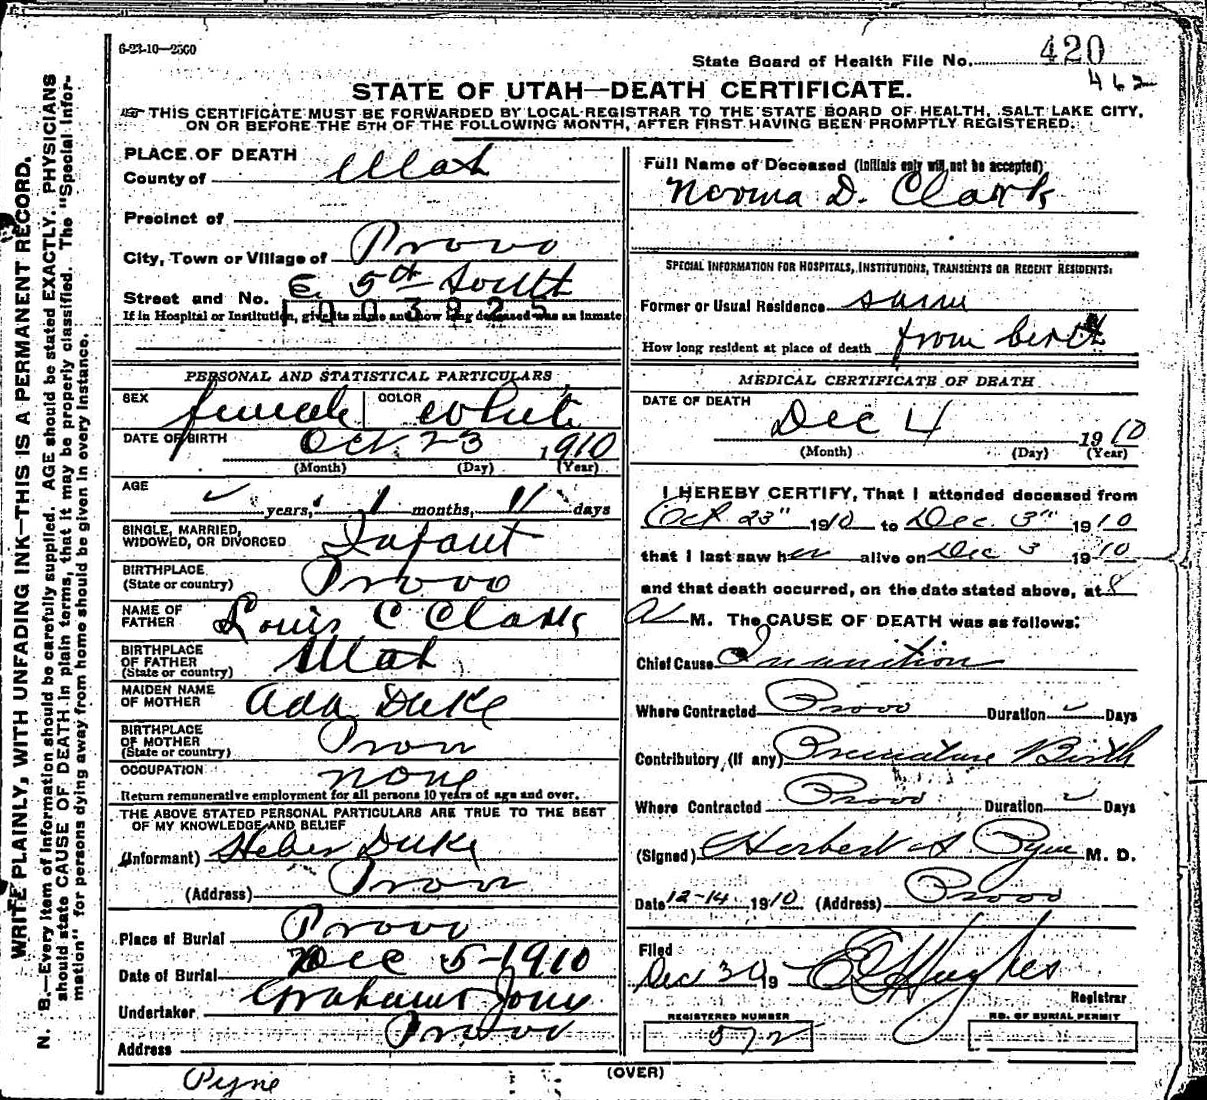 6-23-10—2500
State Board of Health File No. 420
462
STATE OF UTAH—DEATH CERTIFICATE.
☞ THIS CERTIFICATE MUST BE FORWARDED BY LOCAL REGISTRAR TO THE STATE BOARD OF HEALTH, SALT LAKE CITY,
ON OR BEFORE THE 5TH OF THE FOLLOWING MONTH, AFTER FIRST HAVING BEEN PROMPTLY REGISTERED.
WRITE PLAINLY, WITH UNFADING INK—THIS IS A PERMANENT RECORD.
N. B.—Every item of information should be carefully supplied. AGE should be stated EXACTLY. PHYSICIANS
should state CAUSE OF DEATH in plain terms, that it may be properly classified. The "Special Infor-
mation" for persons dying away from home should be given in every instance.
PLACE OF DEATH
County of Utah
Precinct of
City, Town or Village of Provo
Street and No. E. 5th South
1003925
If in Hospital or Institution, give its name and how long deceased was an inmate
PERSONAL AND STATISTICAL PARTICULARS
SEX female COLOR White
DATE OF BIRTH Oct. 23 1910
(Month) (Day) (Year)
AGE
years, 1 months, 11 days
SINGLE, MARRIED,
WIDOWED, OR DIVORCED Infant
BIRTHPLACE
(State or country) Provo
NAME OF
FATHER Louis C Clark
BIRTHPLACE
OF FATHER
(State or country) Utah
MAIDEN NAME
OF MOTHER Ada Duke
BIRTHPLACE
OF MOTHER
(State or country) Provo
OCCUPATION none
Return remunerative employment for all persons 10 years of age and over.
THE ABOVE STATED PERSONAL PARTICULARS ARE TRUE TO THE BEST
OF MY KNOWLEDGE AND BELIEF
(Informant) Heber Duke
(Address) Provo
Place of Burial Provo
Date of Burial Dec 5-1910
Undertaker Graham Jones
Address Provo
Full Name of Deceased (Initials only will not be accepted)
Norma D. Clark
SPECIAL INFORMATION FOR HOSPITALS, INSTITUTIONS, TRANSIENTS OR RECENT RESIDENTS:
Former or Usual Residence same
How long resident at place of death from birth
MEDICAL CERTIFICATE OF DEATH
DATE OF DEATH
Dec 4 1910
(Month) (Day) (Year)
I HEREBY CERTIFY, That I attended deceased from
Oct 23" 1910 to Dec. 3" 1910
that I last saw her alive on Dec 3 1910
and that death occurred, on the date stated above, at 8
A M. The CAUSE OF DEATH was as follows:
Chief Cause Inanition
Where Contracted Provo Duration Days
Contributory (if any) Premature Birth
Where Contracted Provo Duration Days
(Signed) Herbert S Pyne M. D.
Date 12-14 1910 (Address) Provo
Filed
Dec 30 19 Hughes
Registrar
REGISTERED NUMBER
572
NO. OF BURIAL PERMIT
(OVER)
Pyne